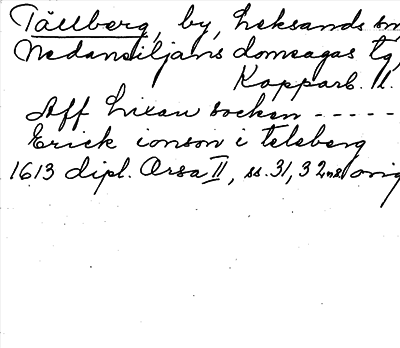 Tällberg, by, Leksands sn
Nedansiljans domsagas tg,
Kopparb. l.
Aff Lixan socken -----
Erick ionson i telsberg
1613 dipl. Orsa II, ss. 31, 32 orig